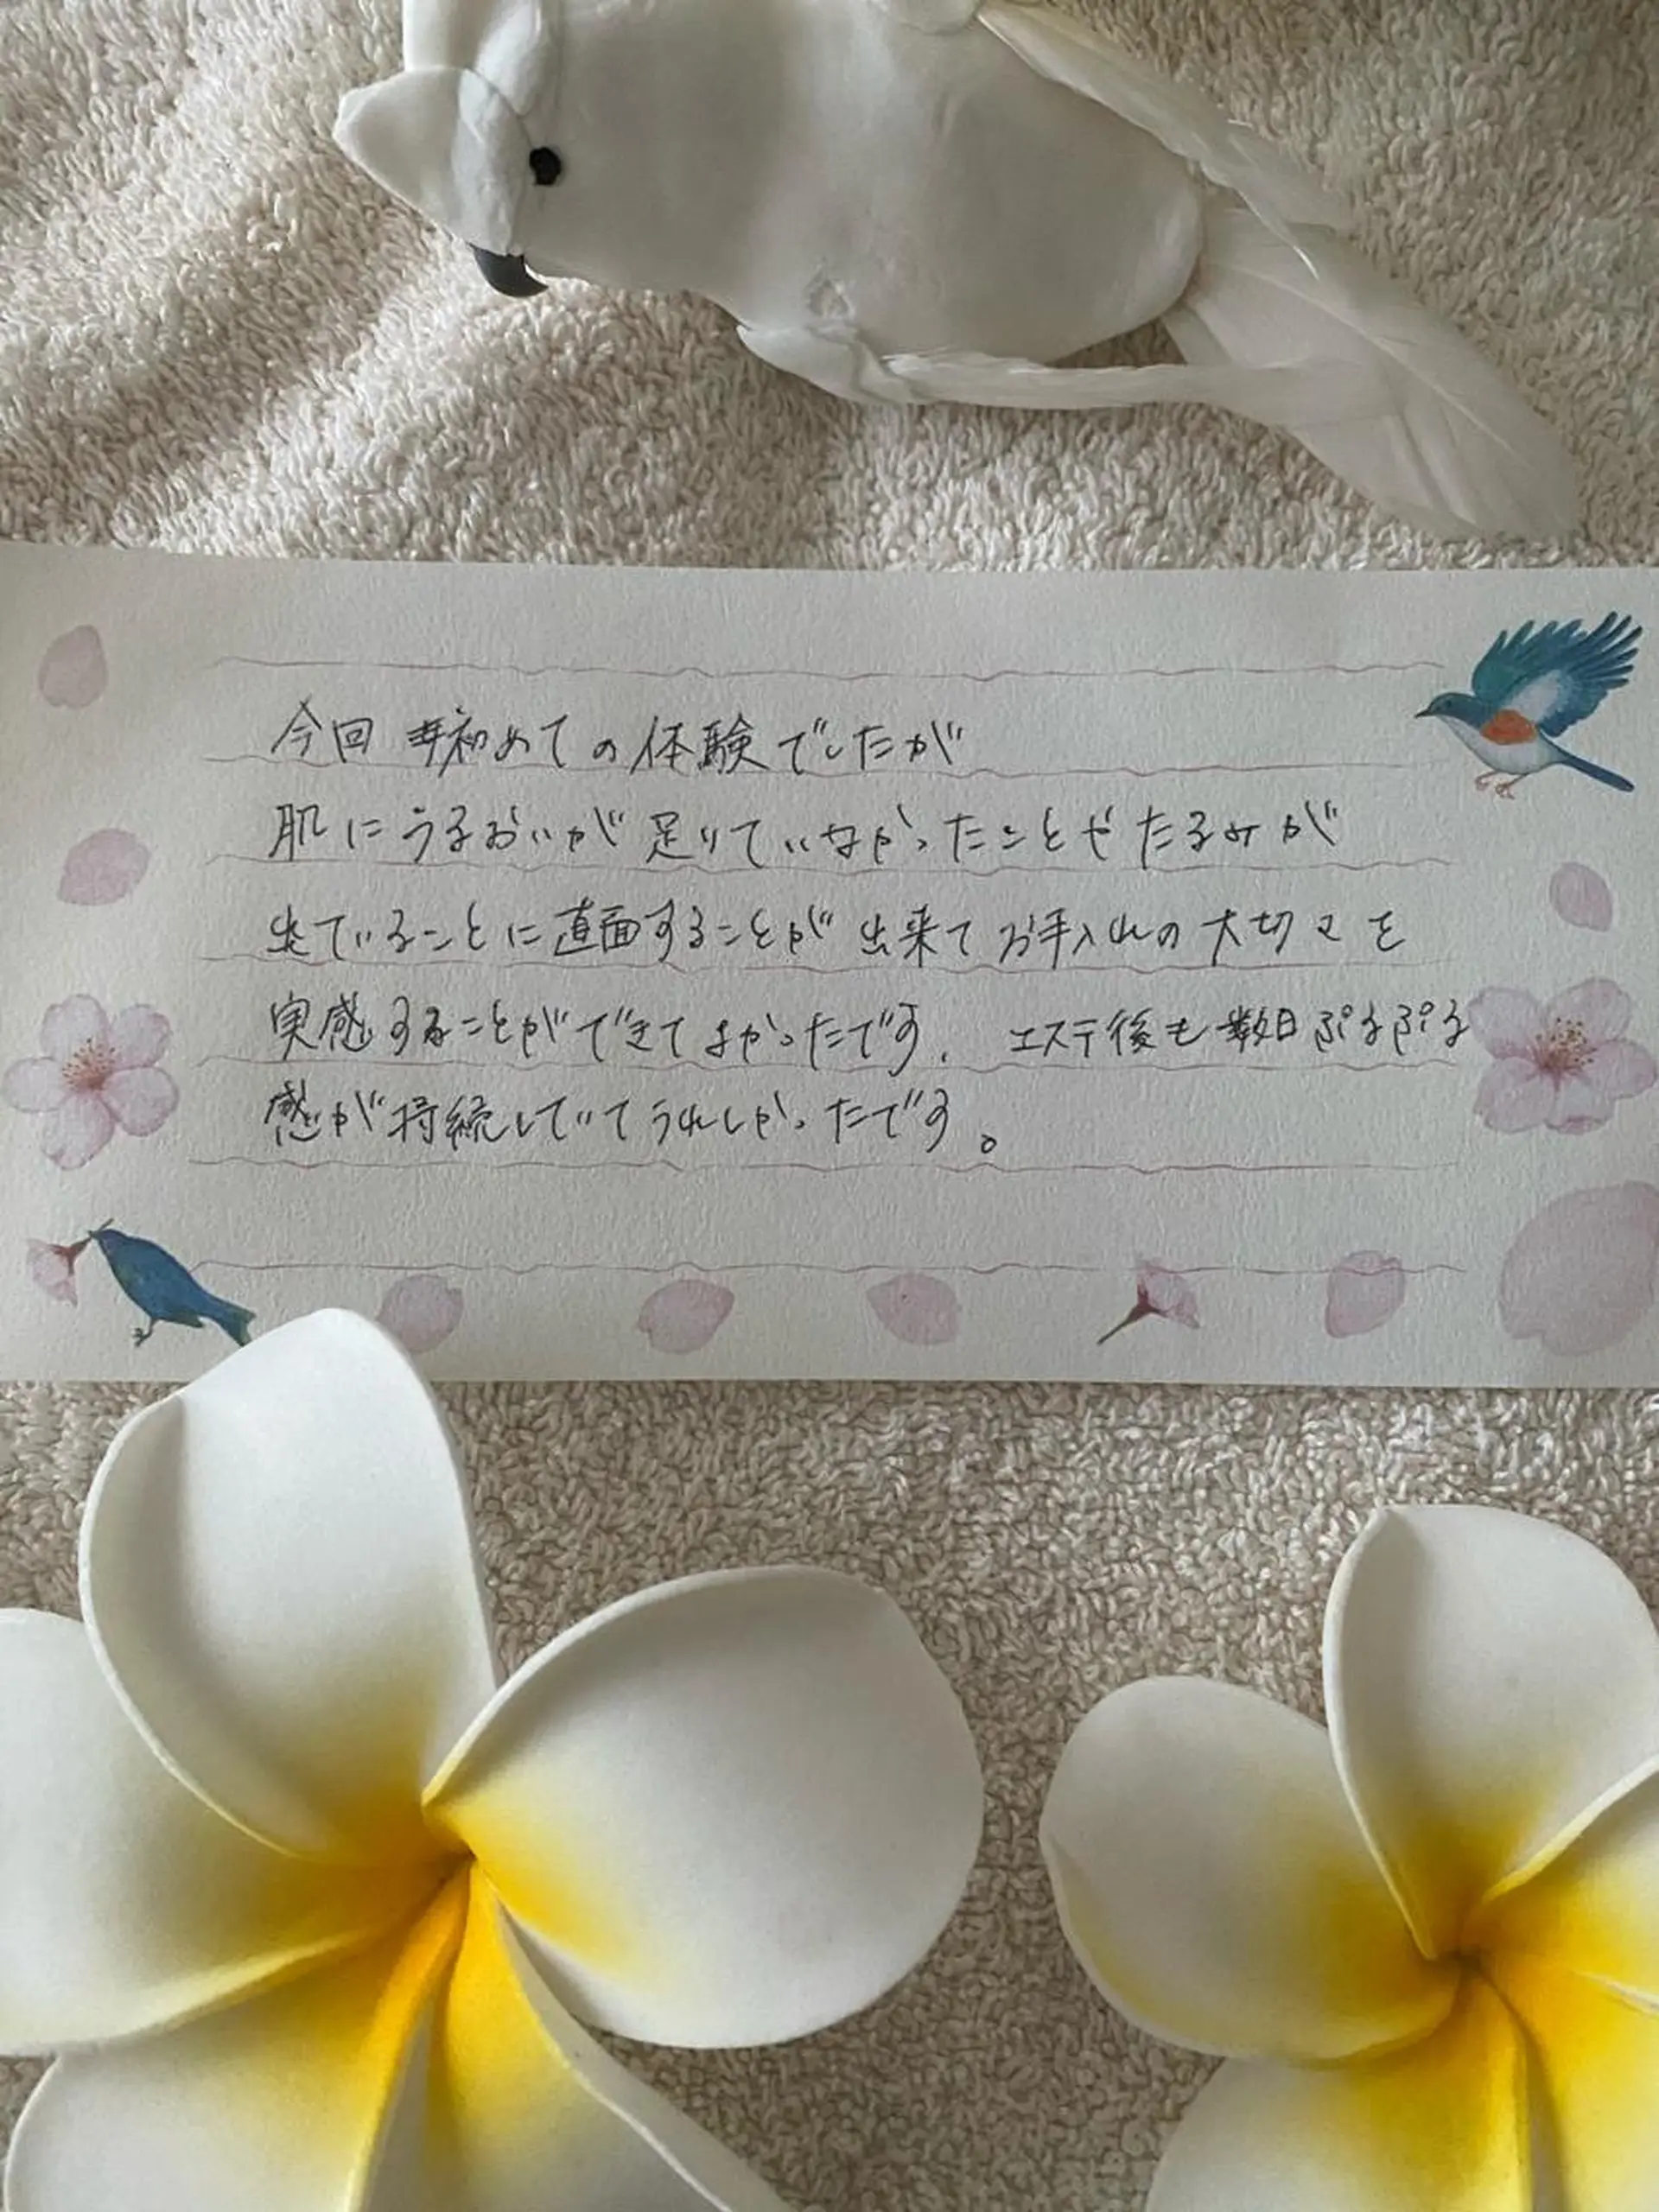 今回 初めての体験でしたが
肌にうるおいが足りていなかったことやたるみが
出ていることに直面することが出来てお手入れの大切さを
実感することができてよかったです。 エステ後も数日ぷるぷる
感が持続していてうれしかったです。